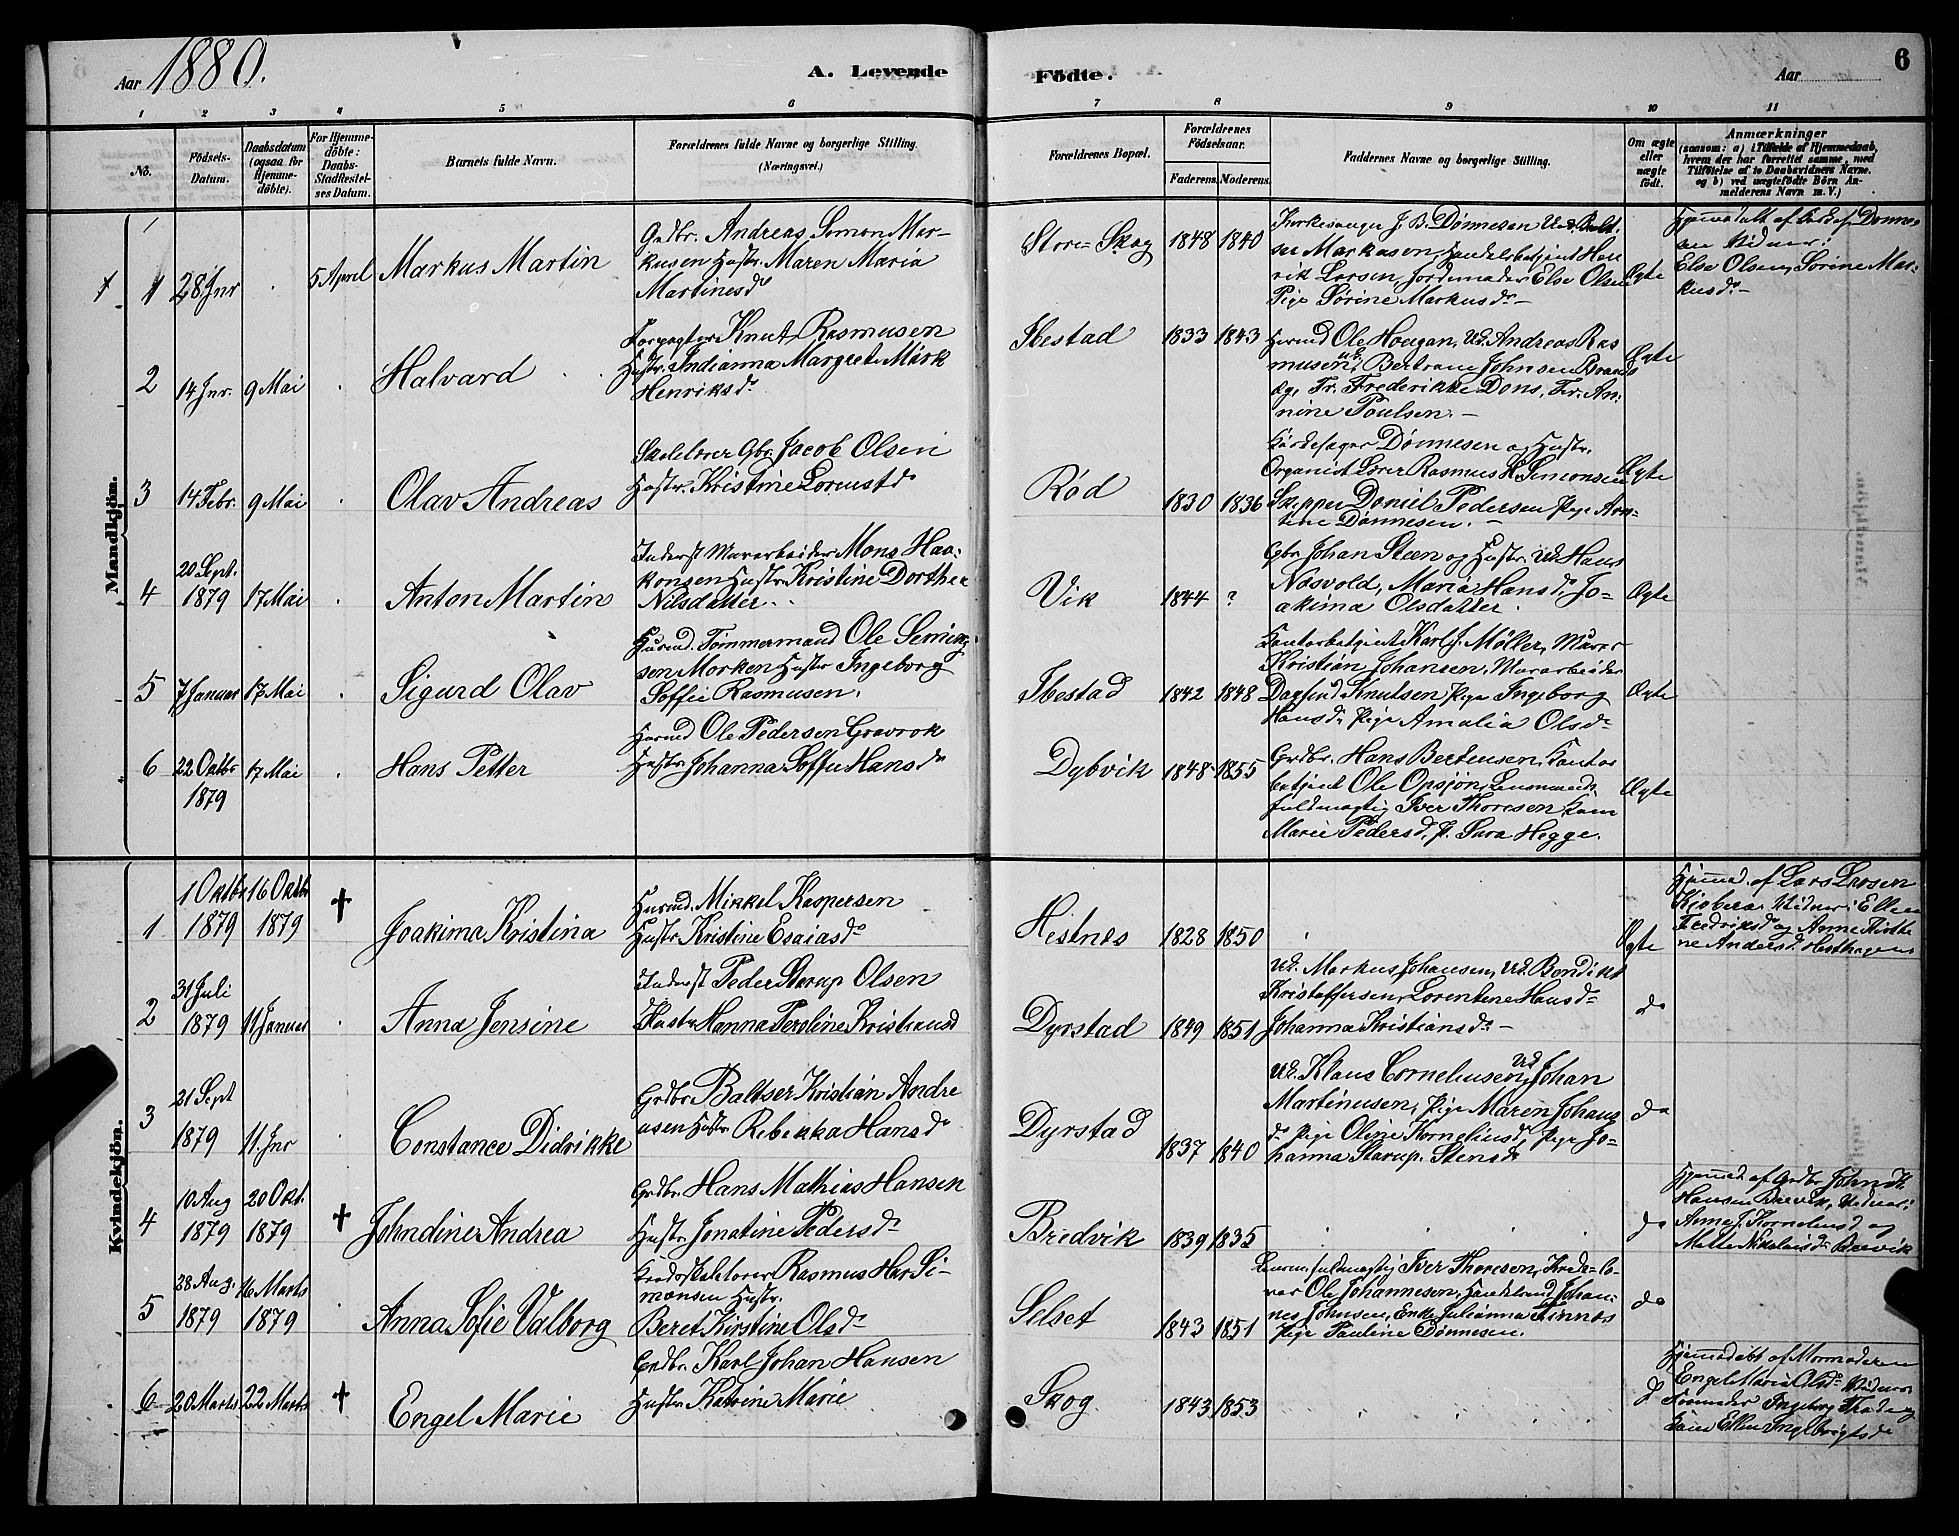 Aar 1880.
A. Levende
Fødte.
Aar
6
1 2 3 4 5 6 7 8 9 10 11
No.
Fødsels-
Datum.
Daabsdatum
(ogsaa for
Hjemme-
døbte).
For Hjemme-
døbte:
Daabs-
Stadfæstel-
ses Datum.
Barnets fulde Navn.
Forældrenes fulde Navne og borgerlige Stilling.
(Næringsvei.)
Forældrenes Bopæl.
Forældrenes
Fødselsaar.
Faderens. Moderens.
Faddernes Navne og borgerlige Stilling.
Om ægte
eller
uægte
født.
Anmærkninger
(saasom: a) i Tilfælde af Hjemmedaab,
hvem der har forrettet samme, med
Tilføielse af to Daabsvidners Navne.
og b) ved uægtefødte Børn An-
melderens Navn m. V.)
Mandkjøn.
1 28 Jnr 5 April
Markus Martin
Grdbr. Andreas Simon Mar-
kusen Hustr. Maren Maria
Martinesd
Store-Skog 1848 1840
Kirkesanger J. B. Dønnesen Ud. Balt-
ser Markusen, Handelsbetjent Hen
rik Larsen, Jordemoder Else Olsen
Pige Sørine Markusd
Ægte
Else Olsen, Sørine Mar-
kusd
2 14 Jnr. 9 Mai
Halvard
Forpagter Knut Rasmusen
Hustr. Indianna Margrete Mørk
Henriksd
Ibestad 1833 1843
Ole Haugan, Ud. Andreas Ras
musen, Bertram Johnsen
Fr. Frederikke Dons, Fr. An-
nine Poulsen
Ægte
3 14 Febr. 9 Mai
Olav Andreas
Jacob Olsen
Hustr. Kristine Lorentsd
Rød 1830 1836
Dønnesen og Hustr.
Organist Lærer Rasmus H. Simonsen
Skipper Daniel Pedersen Pige Arn-
tine Dønnesen.
Ægte
4 20 Sept. 1879 17 Mai
Anton Martin
Inderst Murarbeider Mons Haa-
konsen Hustr. Kristine Dorthea
Nilsdatter
Vik 1844 ?
Gbr. Johan Steen og Hustr. Ud. Hans
Næsvold, Maria Hansd, Jo-
akima Olsdatter.
Ægte
5 7 Januar 17 Mai
Sigurd Olav
Husmd. Tømmermand Ole Seming-
sen Morken Hustr Ingeborg
Soffie Rasmusen.
Ibestad 1842 1848
Kontorbetjent Karl J. Møller, Murer
Kristian Johansen, Murarbeider
Dagfind Knutsen, Pige Ingeborg
Hansd, Pige Amalia Olsd
Ægte
6 22 Octbr 1879 17 Mai
Hans Petter
Husmd Ole Pedersen Gravrok
Hustr. Johanna Soffie Hansd
Dybvik 1848 1855
Grdbr. Hans Berteusen, Kontor
betjent Ole Opsjøn, Lensmands
fuldmægtig Iver Thoresen, Kone
Marie Pedersd, P. Sara Hegge.
Ægte
Kvindekjøn.
1 1 Octbr 1879 16 Octbr 1879 †
Joakima Kristina
Husmd. Mikkel Kaspersen
Hustr Kristine Esaiasd
Hestnes 1828 1850
Ægte
Hjemmed. af Lars Larsen
Vidner: Ellen
Fredriksd og Anne Kirsti
ne Andersd. Hesthagen
2 31 Juli 1879 11 Januar
Anna Jensine
Inderst Peder Starup Olsen
Hustr Hanna Peroline Kristiansd
Dyrstad 1849 1851
Ud. Markus Johansen, Ud. Bendikt
Kristoffersen, Lorentine Hansd
Johanna Kristiansd
do
3 21 Sept 1879 11 Jnr
Constance Didrikke
Grdbr Baltser Kristian Andre
asen Hustr Rebekka Hansd
Dyrstad 1837 1840
Ud. Klaus Corneliusen, Ud Johan
Martinusen, Pige Maren Johans
d, Pige Oline Kornelinsd, Pige Jo-
hanna Starup. Stensd
do
4 10 Aug 1879 20 Okt. 1879 †
Johndine Andrea
Grdbr. Hans Mathias Hansen
Hustr Jonatine Pedersd
Bredvik 1839 1835
do
Hjemmed af Grdbr John
Hansen Brevik, Vidner:
Anne J. Kornelinsd og
Mette Nikolaisd Brevik
5 28 Aug. 1879 16 Marts 1879
Anna Sofie Valborg
Rasmus Har Si-
monsen Hustr.
Beret Kirstine Olsd
Selset 1843 1851
Lensm. fuldmægtig Iver Thoresen,
Ole Johannesen, Johan-
nes Johnsen, Enke Julianna Finnes
Pige Pauline Dønnesen.
do
6 20 Marts 22 Marts †
Engel Marie
Grdbr. Karl Johan Hansen
Hustr Katrine Marie
Skog 1843 1853
Hjemmedøbt af Mormoderen
Engel Maria Olsd
Ellen Ingebrigtsd